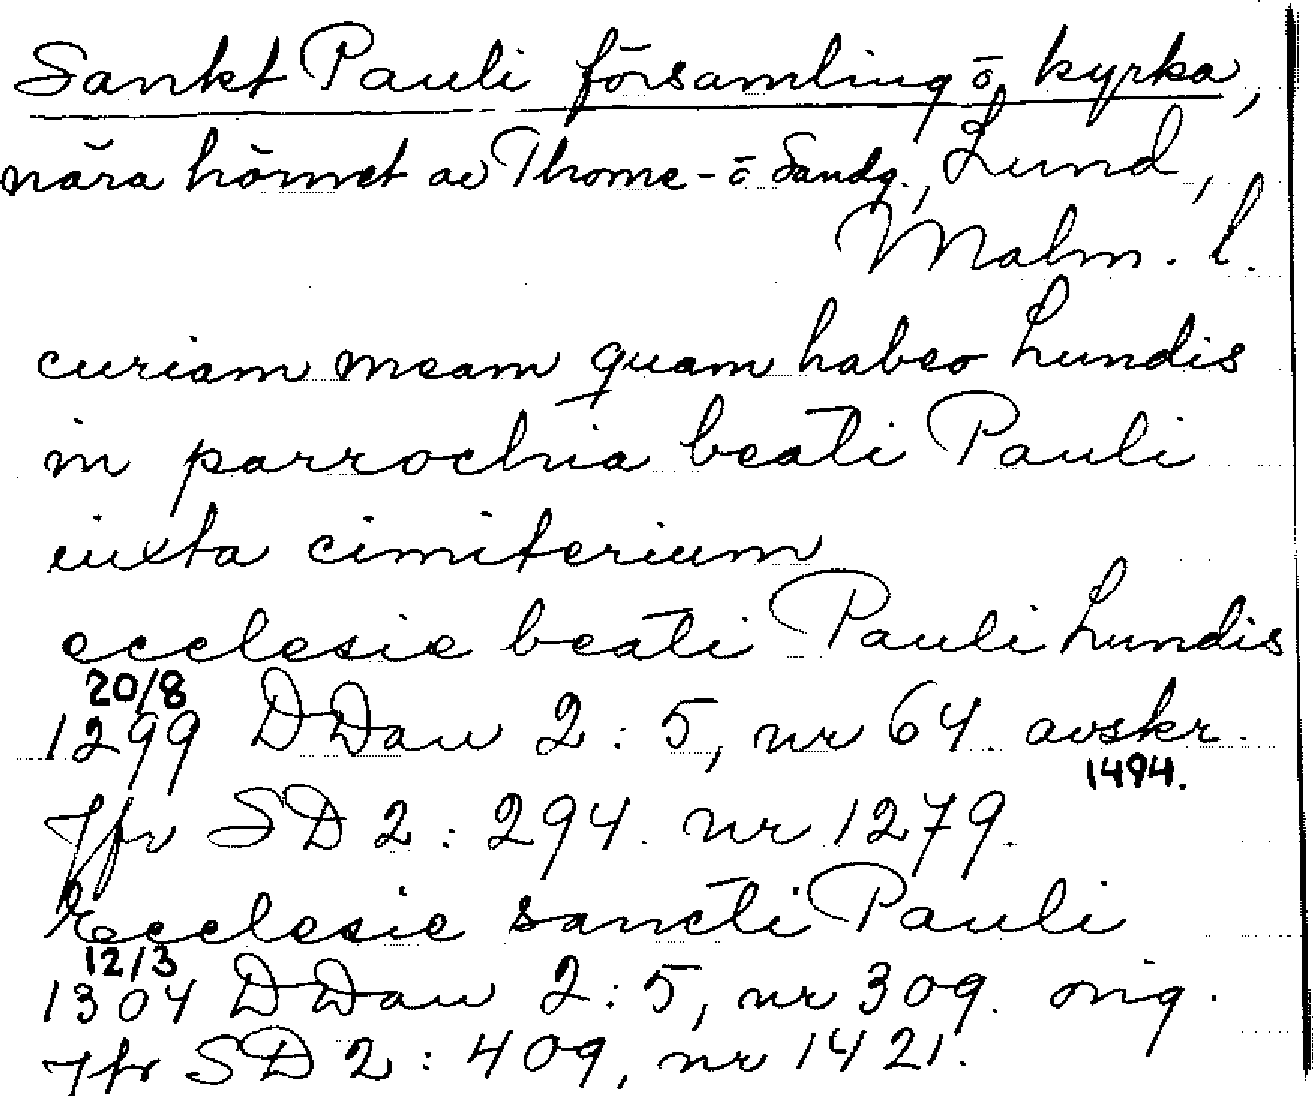 Sankt Pauli församling ō kyrka,
nära hörnet av Thome- ō Sandg., Lund,
Malm. l.
curiam meam quam habeo Lundis
in parrochia beati Pauli
iuxta cimiterium
ecclesie beati Pauli Lundis
20/8
1299 DDan 2:5, nr 64 avskr.
1494.
Jfr SD 2:294. nr 1279.
Ecclesie sancti Pauli
12/3
1304 DDan 2:5, nr 309. orig.
Jfr SD 2:409, nr 1421.